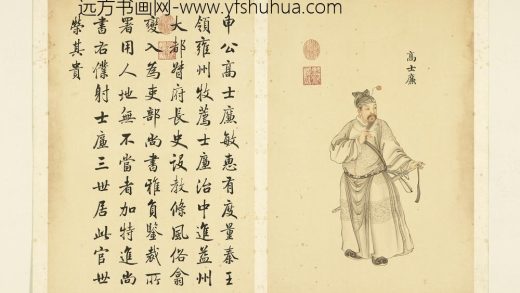 远方书画网-www.yfshuhua.com
高士廉
申公高士廉敏惠有度量秦王
領雍州牧薦士廉治中進益州
大都督府長史設教條風俗翕
變入為吏部尚書雅負鑒裁所
署用人地無不當者加特進尚
書右僕射士廉三世居此官世
榮其貴